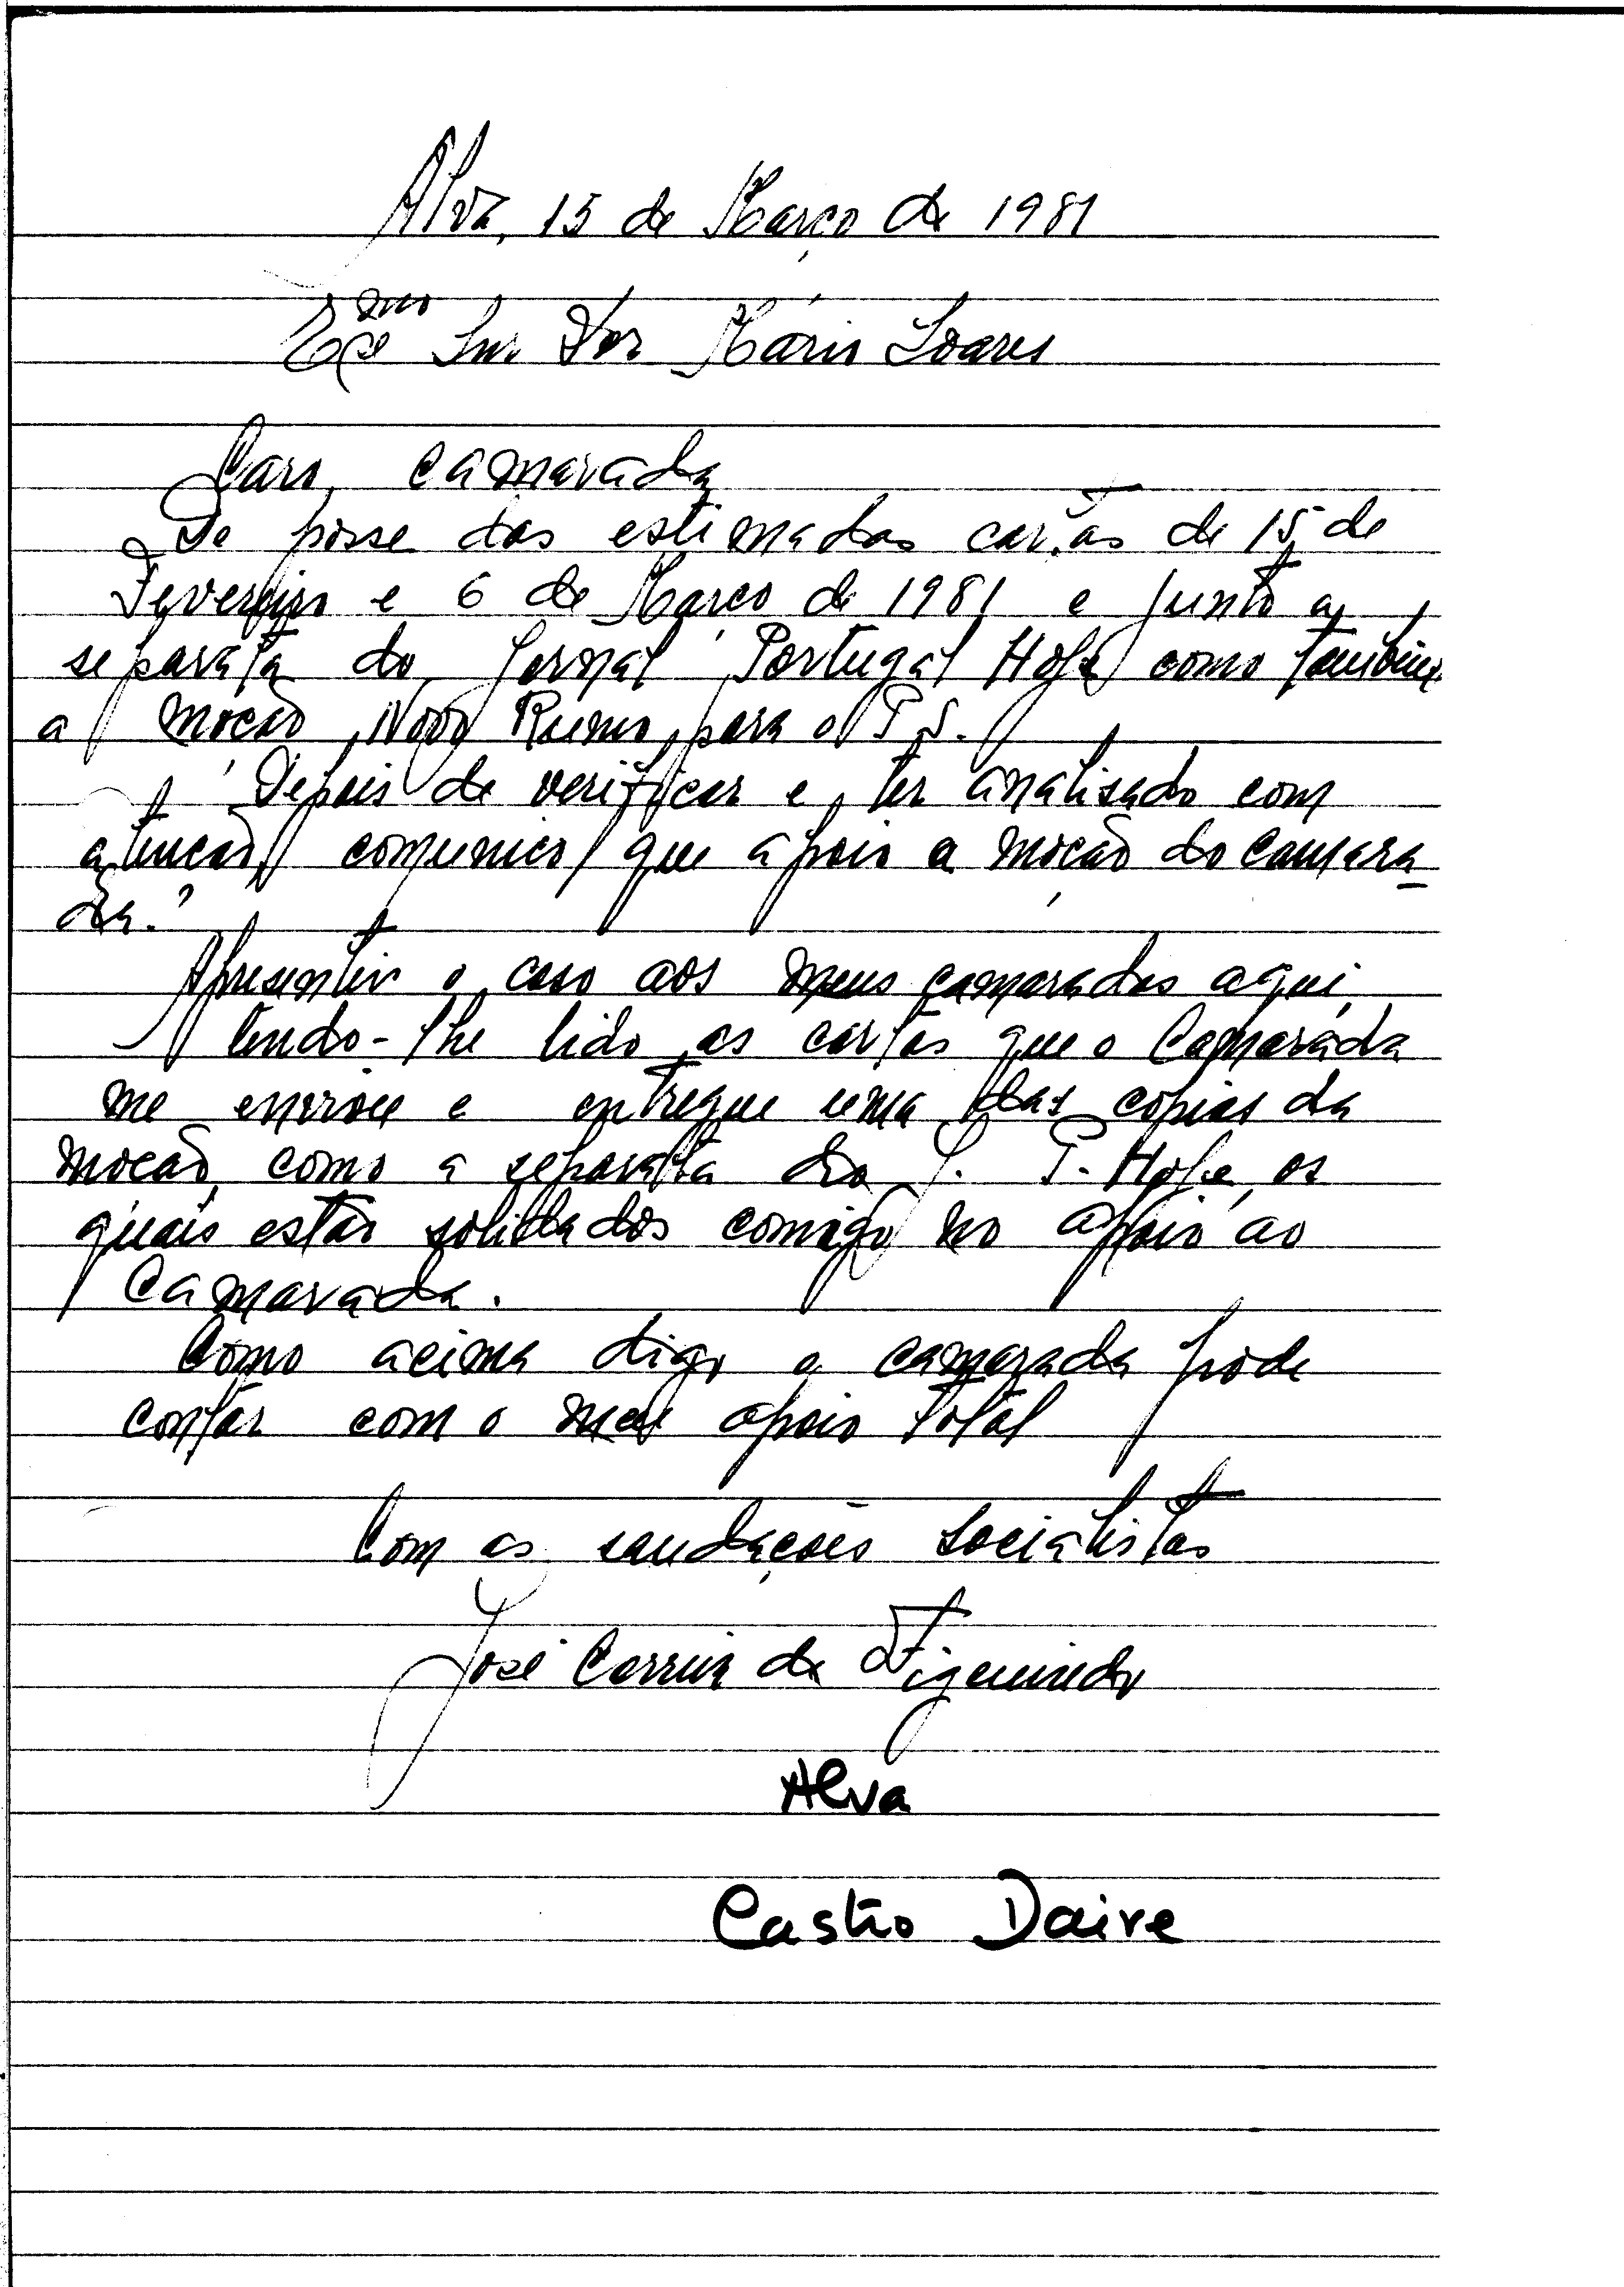 Alva, 15 de Março de 1981
Exce mo Snr Dor Mário Soares
Caro, camarada
De posse das estimadas cartas de 15 de
Fevereiro e 6 de Março de 1981 e junto a
separata do Jornal Portugal Hoje como também
a moção, Novo Rumo, para o P S.
Depois de verificar e ter analisado com
atenção comunico que apoio a moção do camara
da.
Apresentei o caso aos meus camaradas aqui,
tendo-lhe lido as cartas que o Camarada
me enviou e entregue uma das copias da
moção, como a separata do J. P. Hoje, os
quais estão comigo no apoio ao
Camarada.
Como acima digo o camarada pode
contar com o meu apoio total
Com as saudações socialistas
José Correia de Figueiredo
Alva
Castro Daire